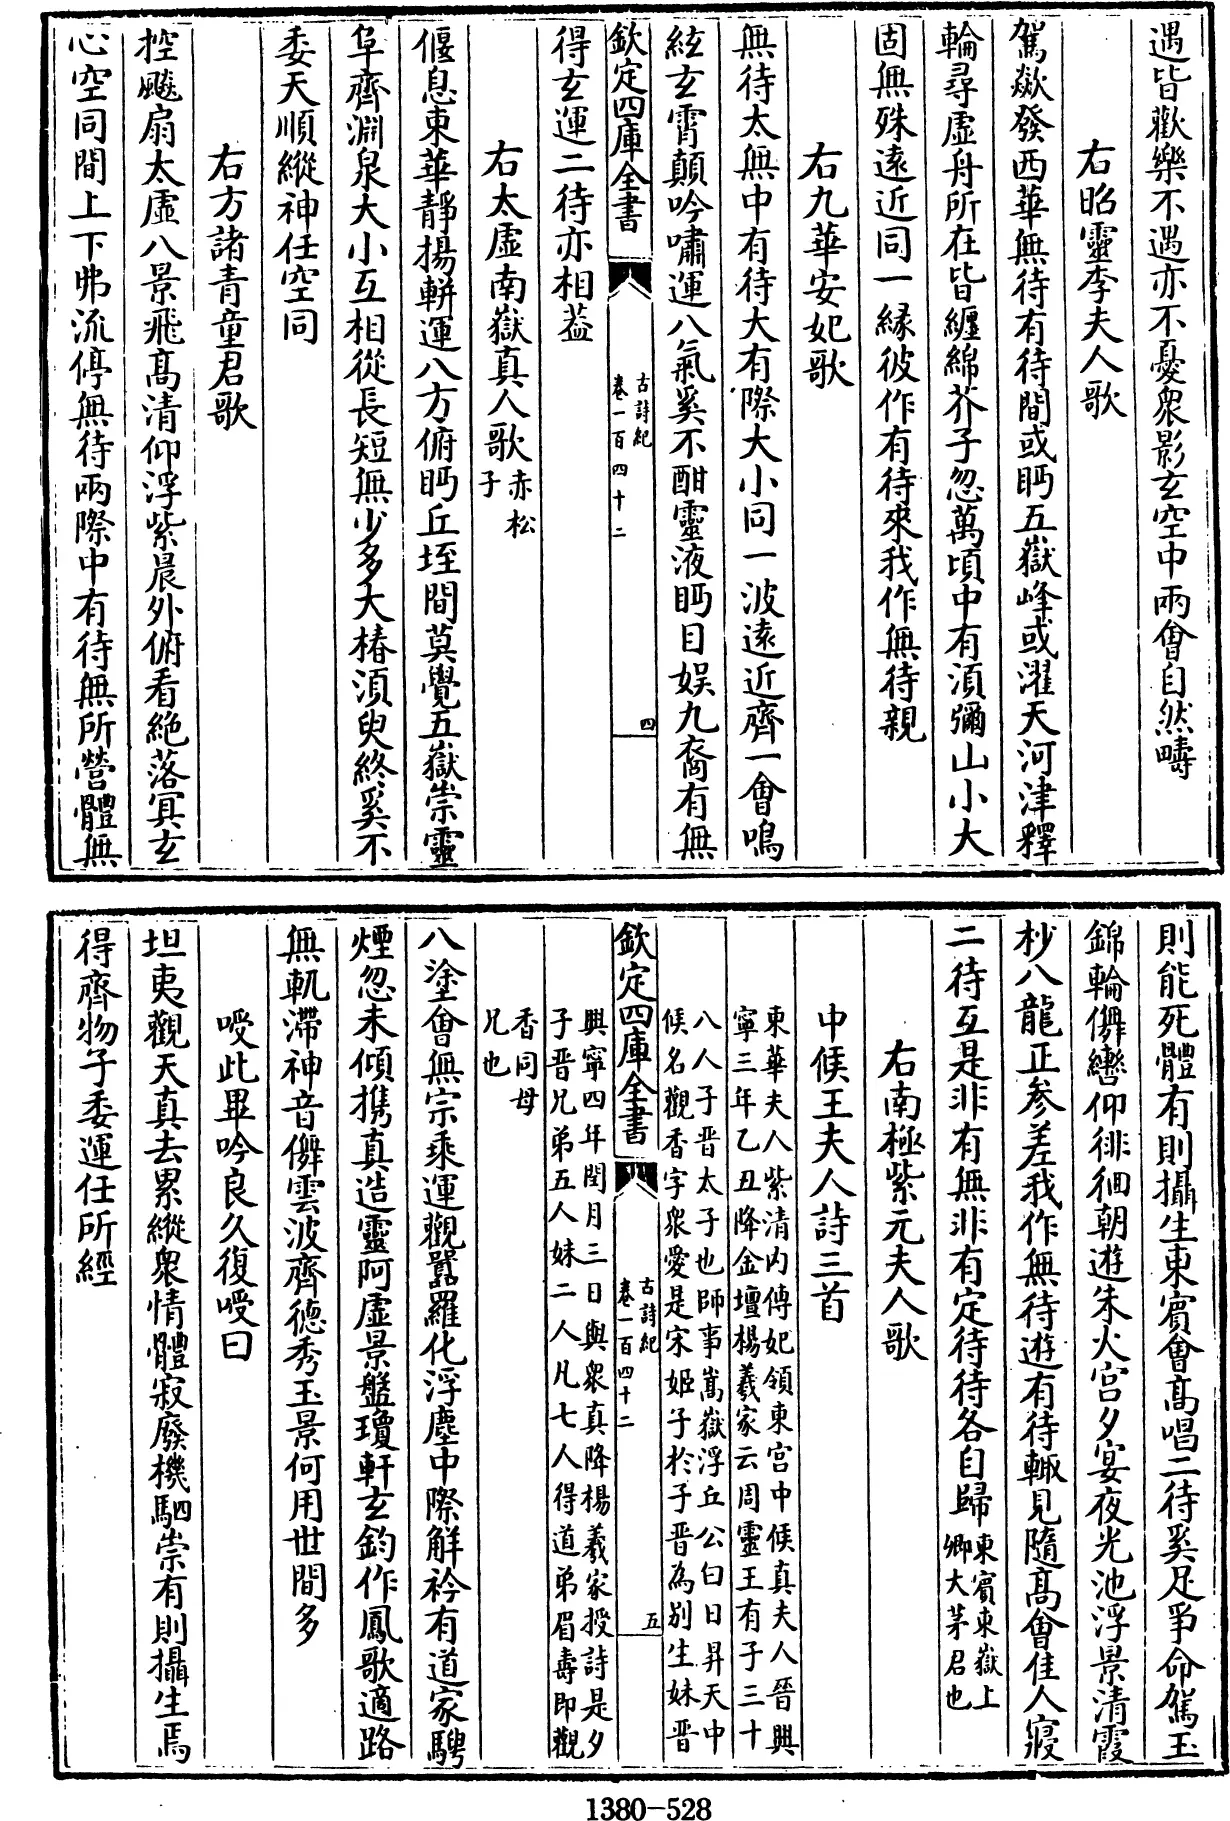 遇皆歡樂不遇亦不憂衆影玄空中兩會自然疇
右昭靈李夫人歌
駕歘發西華無待有待間或眄五嶽峰或濯天河津釋
輪尋虛舟所在皆纏綿芥子忽萬頃中有須彌山小大
固無殊遠近同一緣彼作有待來我作無待親
右九華安妃歌
無待太無中有待大有際大小同一波遠近齊一會鳴
絃玄霄顛吟嘯運八氣奚不酣靈液眄目娱九裔有無
欽定四庫全書
古詩紀
卷一百四十二
四
得玄運二待亦相葢
右太虛南嶽真人歌赤松
子
偃息東華靜揚軿運八方俯眄丘垤間莫覺五嶽崇靈
阜齊淵泉大小互相從長短無少多大椿須臾終奚不
委天順縱神任空同
右方諸青童君歌
控飈扇太虛八景飛髙清仰浮紫晨外俯看絶落冥玄
心空同間上下弗流停無待兩際中有待無所營體無
則能死體有則攝生東賔會髙唱二待奚足爭命駕玉
錦輪儛轡仰徘徊朝遊朱火宮夕宴夜光池浮景清霞
杪八龍正參差我作無待遊有待輙見隨髙會佳人寢
二待互是非有無非有定待待各自歸東賔東嶽上
卿大茅君也
右南極紫元夫人歌
中候王夫人詩三首
東華夫人紫清内傳妃領東宮中候真夫人晉興
寧三年乙丑降金壇楊羲家云周靈王有子三十
八人子晉太子也師事嵩嶽浮丘公白日昇天中
候名觀香字衆愛是宋姬子於子晉為別生妹晉
欽定四庫全書
古詩紀
卷一百四十二
五
興寧四年閏月三日與衆真降楊羲家授詩是夕
子晉兄弟五人妹二人凡七人得道弟眉壽即觀
香同母
兄也
八塗會無宗乘運觀囂羅化浮塵中際解衿有道家騁
煙忽未傾攜真造靈阿虛景盤瓊軒玄鈞作鳳歌適路
無軏滯神音儛雲波齊德秀玉景何用世間多
嘤此畢吟良久復嘤曰
坦夷觀天真去累縱衆情體寂廢機駟崇有則攝生焉
得齊物子委運任所經
1380-528